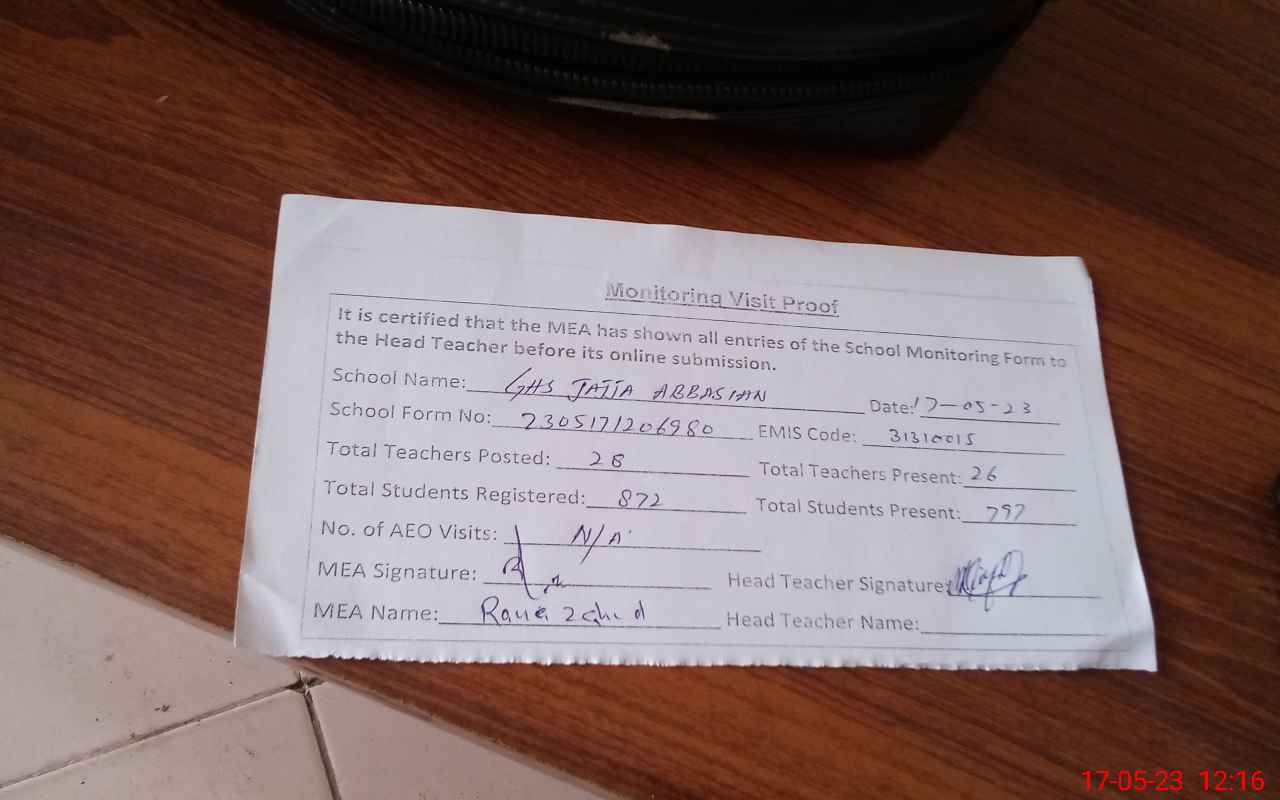 Monitoring Visit Proof
It is certified that the MEA has shown all entries of the School Monitoring Form to
the Head Teacher before its online submission.
School Name: GHS JAJJA ABBASIAN Date: 17-05-23
School Form No: 2305171206980 EMIS Code: 31310015
Total Teachers Posted: 28 Total Teachers Present: 26
Total Students Registered: 872 Total Students Present: 797
No. of AEO Visits: N/A
MEA Signature: Head Teacher Signature:
MEA Name: Rana Zahid Head Teacher Name:
17-05-23 12:16